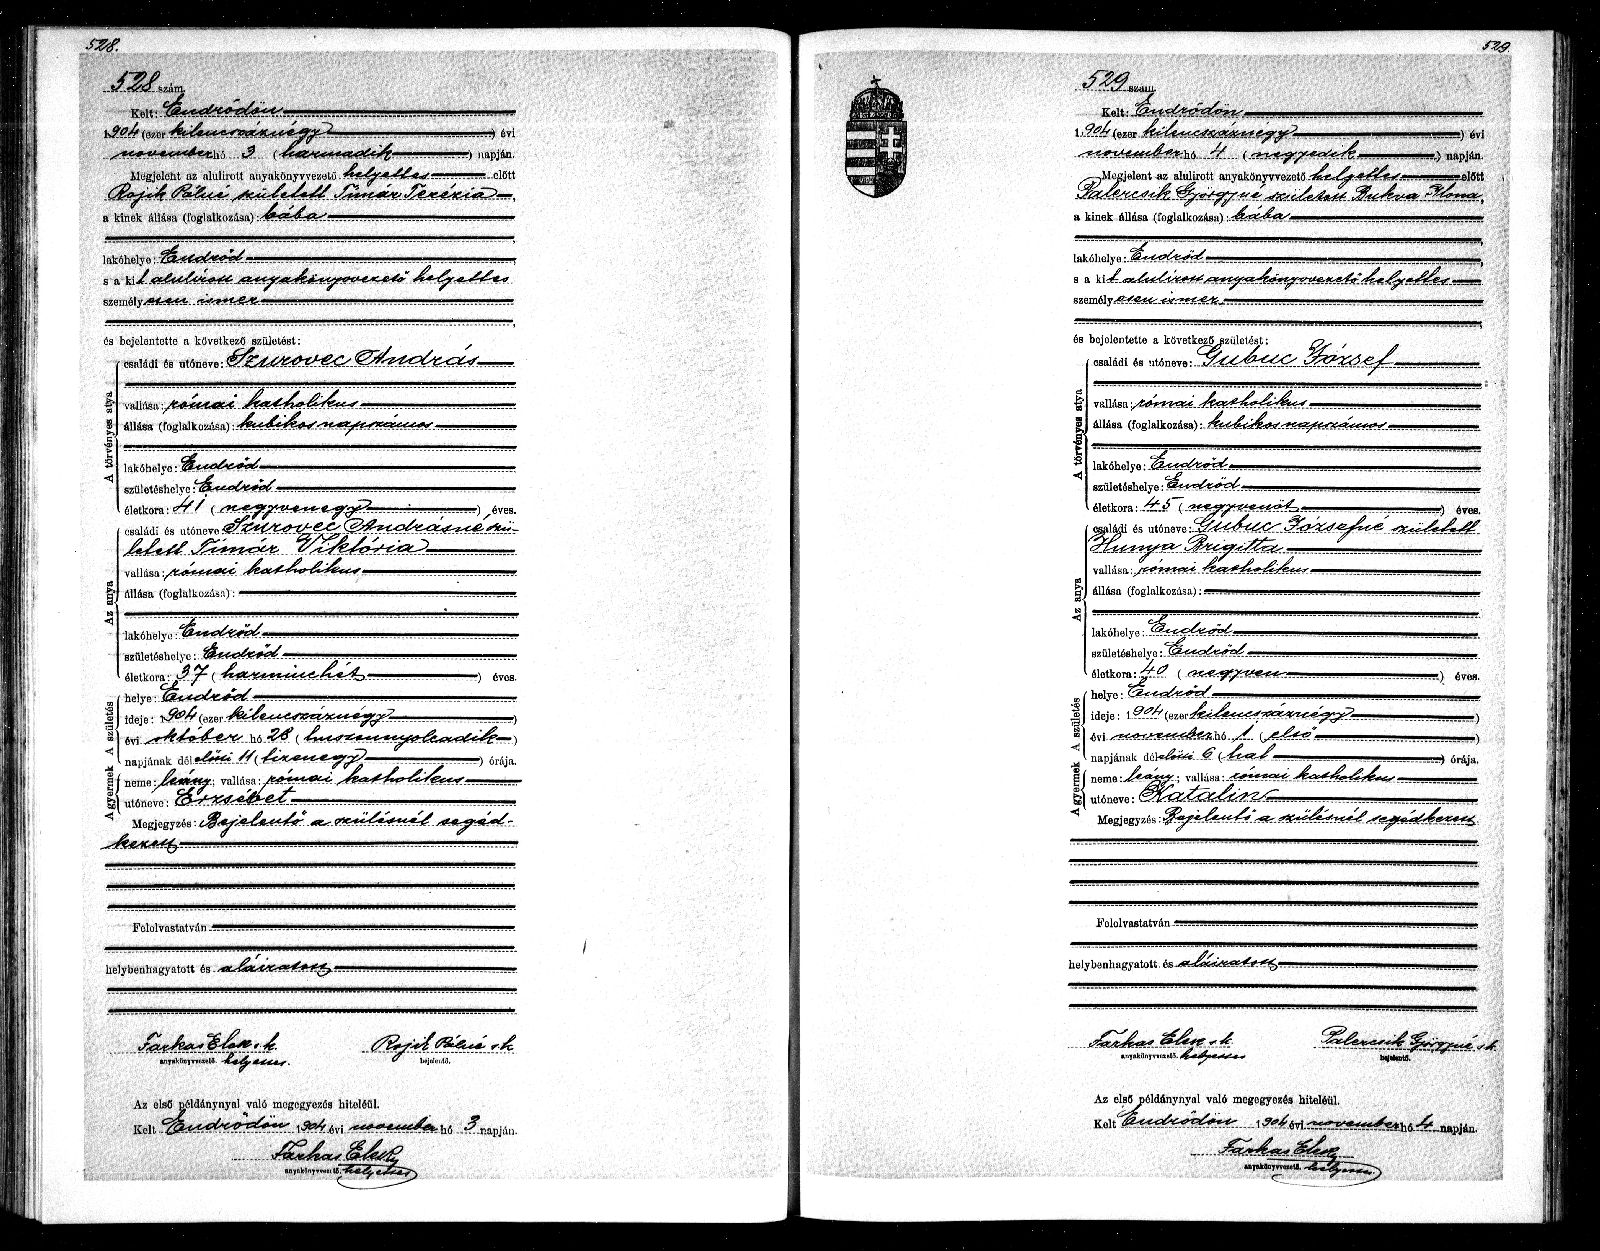 528.
528 szám.
Kelt: Endrődön
1904 (ezer kilencszáznégy) évi
november hó 3 (harmadik) napján.
Megjelent az alulirott anyakönyvvezető helyettes előtt
Rojik Pálné született Tímár Terézia,
a kinek állása (foglalkozása): bába
lakóhelye: Endrőd
s a kit alulírott anyakönyvvezető helyettes
személyesen ismer
és bejelentette a következő születést:
A törvényes atya
családi és utóneve: Szurovec András
vallása: római katholikus
állása (foglalkozása): kubikos napszámos
lakóhelye: Endrőd
születéshelye: Endrőd
életkora: 41 (negyvenegy) éves.
Az anya
családi és utóneve Szurovec Andrásné szü-
letett Tímár Viktória
vallása: római katholikus
állása (foglalkozása):
lakóhelye: Endrőd
születéshelye: Endrőd
életkora: 37 (harminchét) éves.
A születés
helye: Endrőd
ideje: 1904 (ezer kilencszáznégy)
évi október hó 28 (huszonnyolcadik)
napjának délelőtti 11 (tizenegy) órája.
A gyermek
neme: leány; vallása: római katholikus
utóneve: Erzsébet
Megjegyzés: Bejelentő a szülésnél segéd-
kezett
Felolvastatván
helybenhagyatott és aláiratott
Farkas Elek s.k. Rojik Pálné s.k.
anyakönyvvezető. helyettes. bejelentő.
Az első példánynyal való megegyezés hiteléül.
Kelt Endrődön 1904 évi november hó 3 napján.
Farkas Elek
anyakönyvvezető. helyettes
529.
529 szám.
Kelt: Endrődön
1904 (ezer kilencszáznégy) évi
november hó 4 (negyedik) napján.
Megjelent az alulirott anyakönyvvezető helyettes előtt
Palercsik Györgyné született Bukva Ilona,
a kinek állása (foglalkozása): bába
lakóhelye: Endrőd
s a kit alulírott anyakönyvvezető helyettes
személyesen ismer
és bejelentette a következő születést:
A törvényes atya
családi és utóneve: Gubuc József
vallása: római katholikus
állása (foglalkozása): kubikos napszámos
lakóhelye: Endrőd
születéshelye: Endrőd
életkora: 45 (negyvenöt) éves.
Az anya
családi és utóneve: Gubuc Józsefné született
Hunya Brigitta
vallása: római katholikus
állása (foglalkozása):
lakóhelye: Endrőd
születéshelye: Endrőd
életkora: 40 (negyven) éves.
A születés
helye: Endrőd
ideje: 1904 (ezer kilencszáznégy)
évi november hó 1 (első)
napjának délelőtti 6 (hat) órája.
A gyermek
neme: leány; vallása: római katholikus
utóneve: Katalin
Megjegyzés: Bejelentő a szülésnél segédkezett
Felolvastatván
helybenhagyatott és aláiratott
Farkas Elek s.k. Palercsik Györgyné s.k.
anyakönyvvezető. helyettes bejelentő.
Az első példánynyal való megegyezés hiteléül.
Kelt Endrődön 1904 évi november hó 4 napján.
Farkas Elek
anyakönyvvezető. helyettes